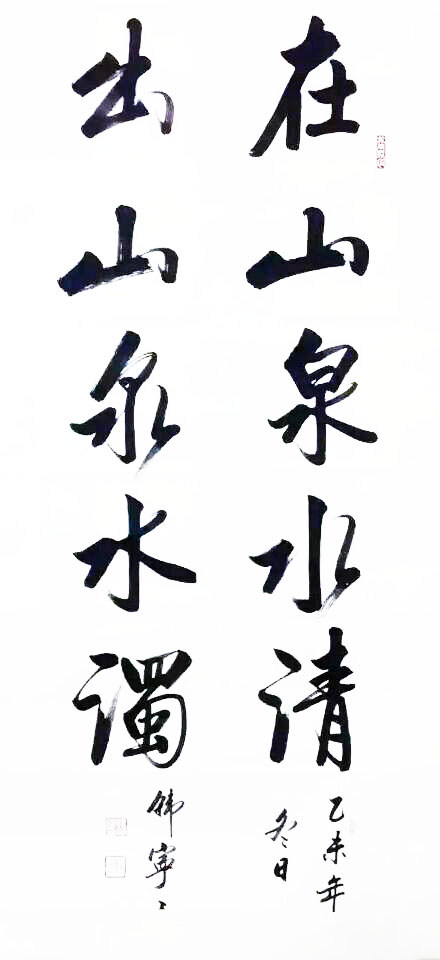 在山泉水清
出山泉水濁
乙未年
冬日
韩寧〻